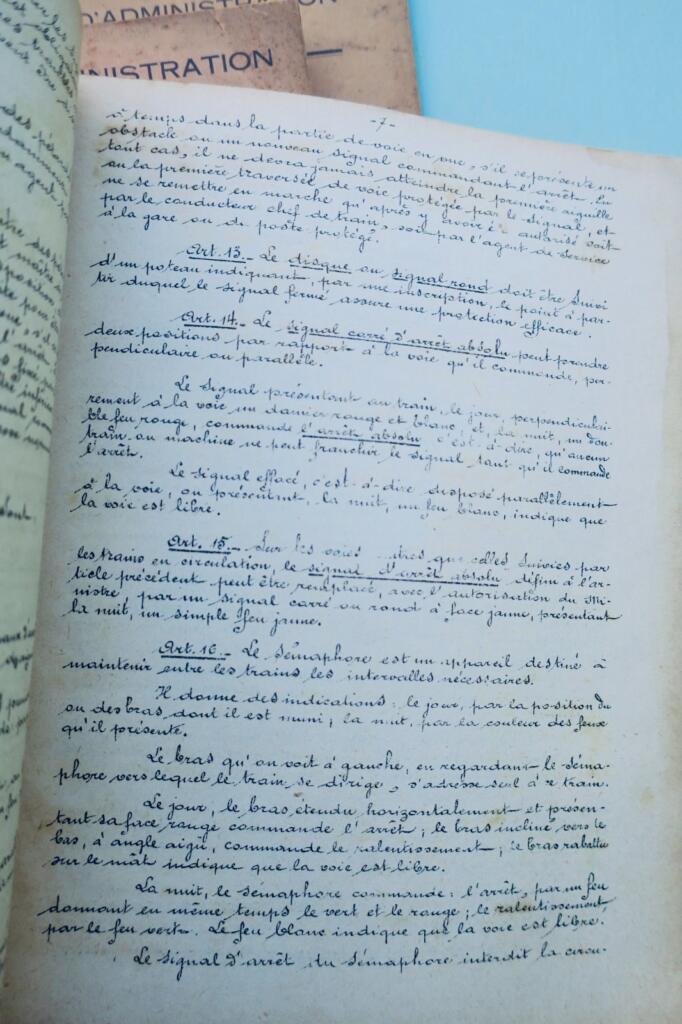 D'ADMINISTRATION
NISTRATION
-7-
à temps dans la partie de voie en vue, s'il se présente un
obstacle ou un nouveau signal commandant l'arrêt. En
tout cas, il ne devra jamais atteindre la première aiguille
ou la première traversée de voie protégée par le signal, et
ne se remettre en marche qu'après y avoir é autorisé soit
par le conducteur chef de train, soit par l'agent de service
à la gare ou du poste protégé.
Art. 13.- Le disque ou signal rond doit être suivi
d'un poteau indiquant, par une inscription, le point à par-
tir duquel le signal fermé assure une protection efficace.
Art. 14.- Le signal carré d'arrêt absolu peut prendre
deux positions par rapport à la voie qu'il commande, per-
pendiculaire ou parallèle.
Le signal présentant au train, le jour, perpendiculai-
rement à la voie un damier rouge et blanc, et, la nuit, un dou-
ble feu rouge, commande l'arrêt absolu c'est-à-dire, qu'aucun
train ou machine ne peut franchir le signal tant qu'il commande
l'arrêt.
Le signal effacé, c'est-à-dire disposé parallèlement
à la voie, ou présentant, la nuit, un feu blanc, indique que
la voie est libre.
Art. 15.- Sur les voies tres que celles suivies par
les trains en circulation, le signal d'arrêt absolu défini à l'ar-
ticle précédent peut être remplacé, avec l'autorisation du Mi-
nistre, par un signal carré ou rond à face jaune, présentant
la nuit, un simple feu jaune.
Art. 16.- Le sémaphore est un appareil destiné à
maintenir entre les trains les intervalles nécessaires.
Il donne des indications : le jour, par la position du
ou des bras dont il est muni ; la nuit, par la couleur des feux
qu'il présente.
Le bras qu'on voit à gauche, en regardant le séma-
phore vers lequel le train se dirige, s'adresse seul à ce train.
Le jour, le bras étendu horizontalement et présen-
tant sa face rouge commande l'arrêt ; le bras incliné vers le
bas, à angle aigu, commande le ralentissement ; le bras rabattu
sur le mât indique que la voie est libre.
La nuit, le sémaphore commande : l'arrêt, par un feu
donnant en même temps le vert et le rouge ; le ralentissement
par le feu vert. Le feu blanc indique que la voie est libre.
Le signal d'arrêt du sémaphore interdit la circu-